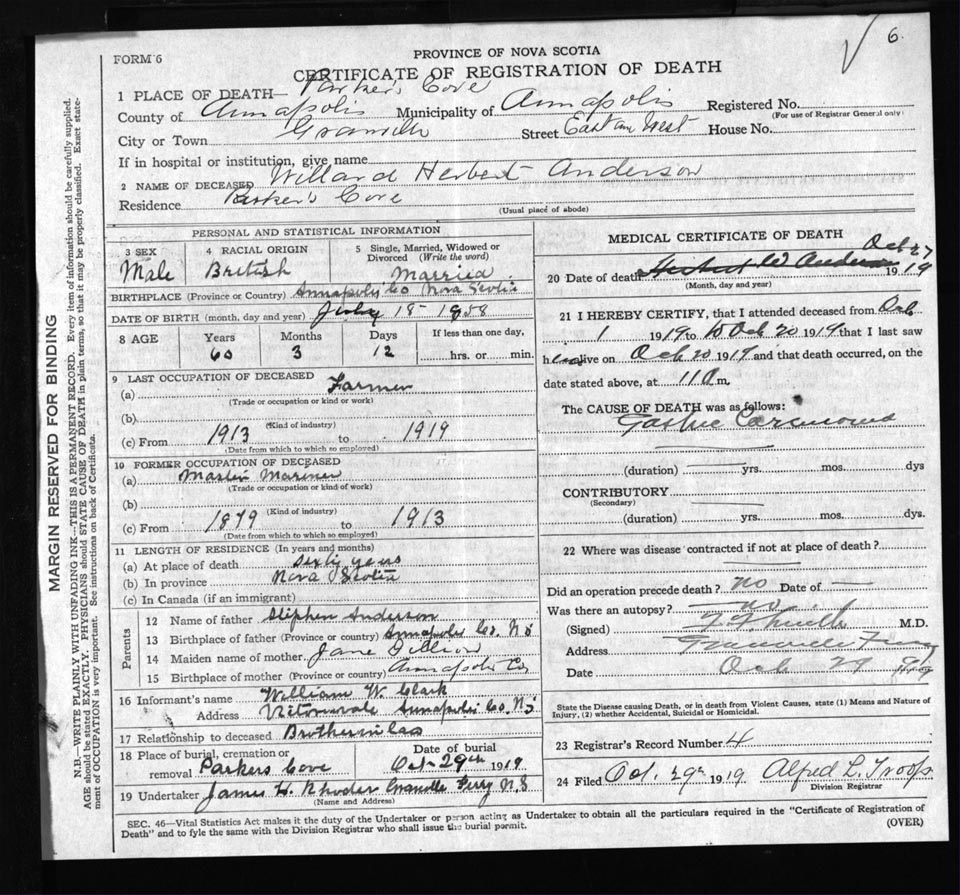 6.
FORM 6
PROVINCE OF NOVA SCOTIA
CERTIFICATE OF REGISTRATION OF DEATH
1 PLACE OF DEATH— Parker's Cove
County of Annapolis Municipality of Annapolis Registered No.
(For use of Registrar General only)
City or Town Granville Street East an West House No.
If in hospital or institution, give name
2 NAME OF DECEASED Willard Herbert Anderson
Residence Parker's Cove
(Usual place of abode)
PERSONAL AND STATISTICAL INFORMATION
3 SEX Male
4 RACIAL ORIGIN British
5 Single, Married, Widowed or Divorced (Write the word) Married
BIRTHPLACE (Province or Country) Annapolis Co Nova Scotia
DATE OF BIRTH (month, day and year) July 15 1858
8 AGE Years Months Days If less than one day,
60 3 12 hrs. or min.
9 LAST OCCUPATION OF DECEASED
(a) Farmer
(Trade or occupation or kind or work)
(b)
(Kind of industry)
(c) From 1913 to 1919
(Date from which to which so employed)
10 FORMER OCCUPATION OF DECEASED
(a) Master Mariner
(Trade or occupation or kind of work)
(b)
(Kind of industry)
(c) From 1879 to 1913
(Date from which to which so employed)
11 LENGTH OF RESIDENCE (In years and months)
(a) At place of death sixty years
(b) In province Nova Scotia
(c) In Canada (if an immigrant)
Parents
12 Name of father Stephen Anderson
13 Birthplace of father (Province or country) Annapolis Co. N S
14 Maiden name of mother Jane
15 Birthplace of mother (Province or country) Annapolis Co,
16 Informant's name William W. Clark
Address Annapolis Co. N S
17 Relationship to deceased Brother in law
18 Place of burial, cremation or removal Parkers Cove
Date of burial Oct 29th 1919
19 Undertaker James H. Rhodes Granville Ferry N S
(Name and Address)
MEDICAL CERTIFICATE OF DEATH
Oct 27
20 Date of death Herbert W Anderson 1919
(Month, day and year)
21 I HEREBY CERTIFY, that I attended deceased from Oct
1 1919 to Oct 20 1919 that I last saw
h alive on Oct 20 1919 and that death occurred, on the
date stated above, at m.
The CAUSE OF DEATH was as follows:
Gastric Carcinoma
(duration) yrs. mos. dys
CONTRIBUTORY
(Secondary)
(duration) yrs. mos. dys.
22 Where was disease contracted if not at place of death?
Did an operation precede death? no Date of —
Was there an autopsy? no
(Signed) M.D.
Address Granville Ferry
Date Oct 27 1919
State the Disease causing Death, or in death from Violent Causes, state (1) Means and Nature of
Injury, (2) whether Accidental, Suicidal or Homicidal.
23 Registrar's Record Number 4
24 Filed Oct. 29th 1919 Alfred L. Troop
Division Registrar
SEC. 46—Vital Statistics Act makes it the duty of the Undertaker or person acting as Undertaker to obtain all the particulars required in the "Certificate of Registration of
Death" and to fyle the same with the Division Registrar who shall issue the burial permit.
(OVER)
MARGIN RESERVED FOR BINDING
N.B.—WRITE PLAINLY WITH UNFADING INK—THIS IS A PERMANENT RECORD. Every item of information should be carefully supplied.
AGE should be stated EXACTLY. PHYSICIANS should STATE CAUSE OF DEATH in plain terms, so that it may be properly classified. Exact statement
of OCCUPATION is very important. See instructions on back of Certificate.